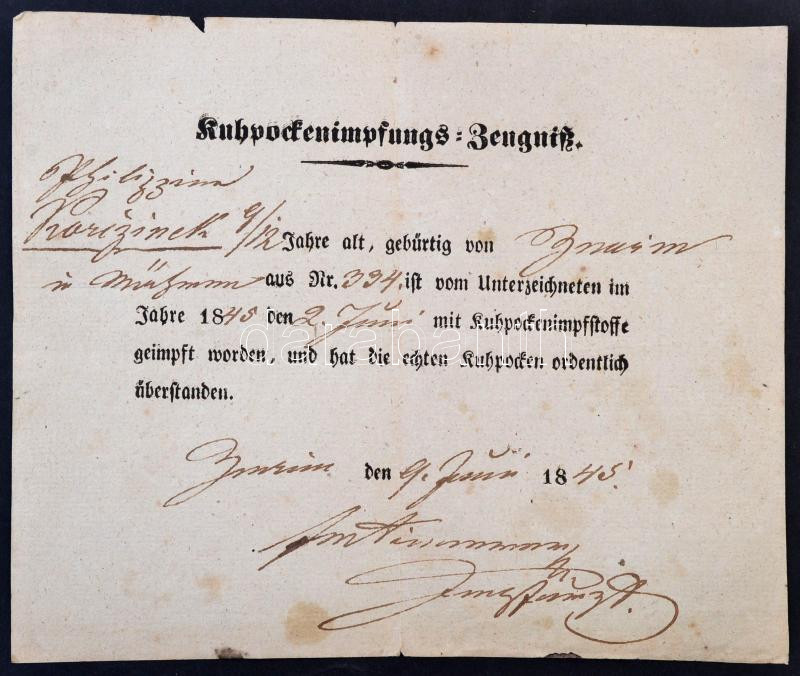 Kuhpockenimpfungs-Zeugniß.
Philippine
Korižinek 9/12 Jahre alt, gebürtig von Znaim
in Mähren aus Nr. 394. ist vom Unterzeichneten im
Jahre 1845 den 2 Juni mit Kuhpockenimpfstoffe
geimpft worden, und hat die echten Kuhpocken ordentlich
überstanden.
Znaim den 9. Juni 1845.
darabanth